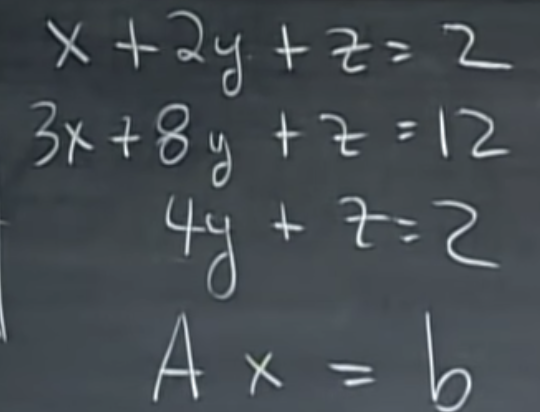 x + 2y + z = 2
3x + 8y + z = 12
4y + z = 2
A x = b